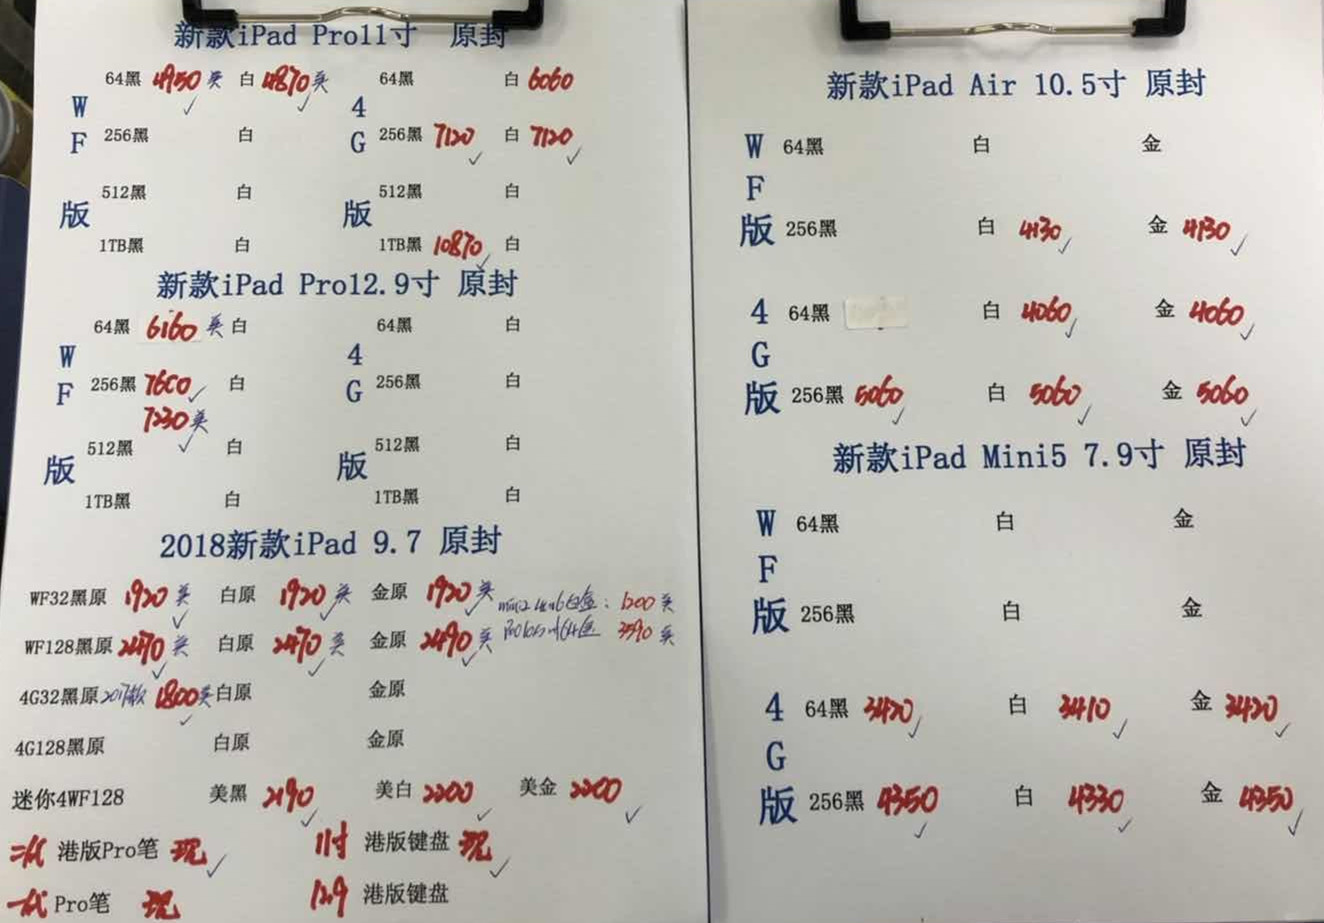 新款iPad Pro11寸 原封
64黑 4950 美 白 4870 美 64黑 白 6060
W 4
F 256黑 白 G 256黑 7120 白 7120
512黑 白 512黑 白
版 版
1TB黑 白 1TB黑 10870 白
新款iPad Pro12.9寸 原封
64黑 6160 美 白 64黑 白
W 4
F 256黑 7600 白 G 256黑 白
7230 美
512黑 白 512黑 白
版 版
1TB黑 白 1TB黑 白
2018新款iPad 9.7 原封
WF32黑原 1920 美 白原 1920 美 金原 1920 美
1200 美
WF128黑原 2470 美 白原 2470 美 金原 2490 美
3590 美
4G32黑原 2017款 1800 美 白原 金原
4G128黑原 白原 金原
迷你4WF128 美黑 2190 美白 2200 美金 2200
二代 港版Pro笔 现 11寸 港版键盘 现
一代 Pro笔 现 12.9 港版键盘
新款iPad Air 10.5寸 原封
W 64黑 白 金
F
版 256黑 白 4130 金 4130
4 64黑 白 4060 金 4060
G
版 256黑 5060 白 5060 金 5060
新款iPad Mini5 7.9寸 原封
W 64黑 白 金
F
版 256黑 白 金
4 64黑 3420 白 3410 金 3420
G
版 256黑 4350 白 4330 金 4350